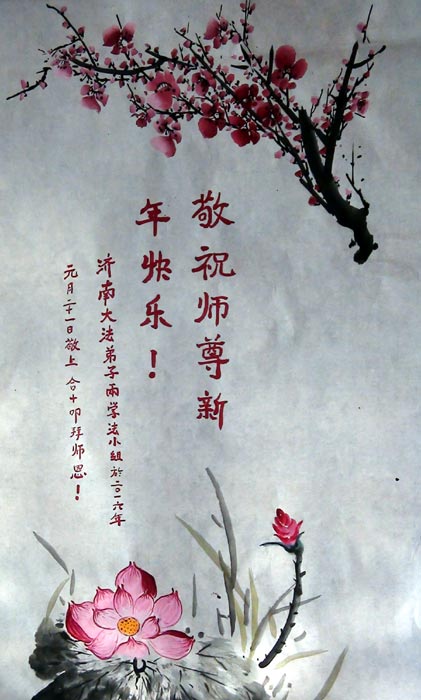 敬祝师尊新
年快乐！
济南大法弟子兩学法小組於二〇一六年
元月二十一日敬上 合十叩拜师恩！